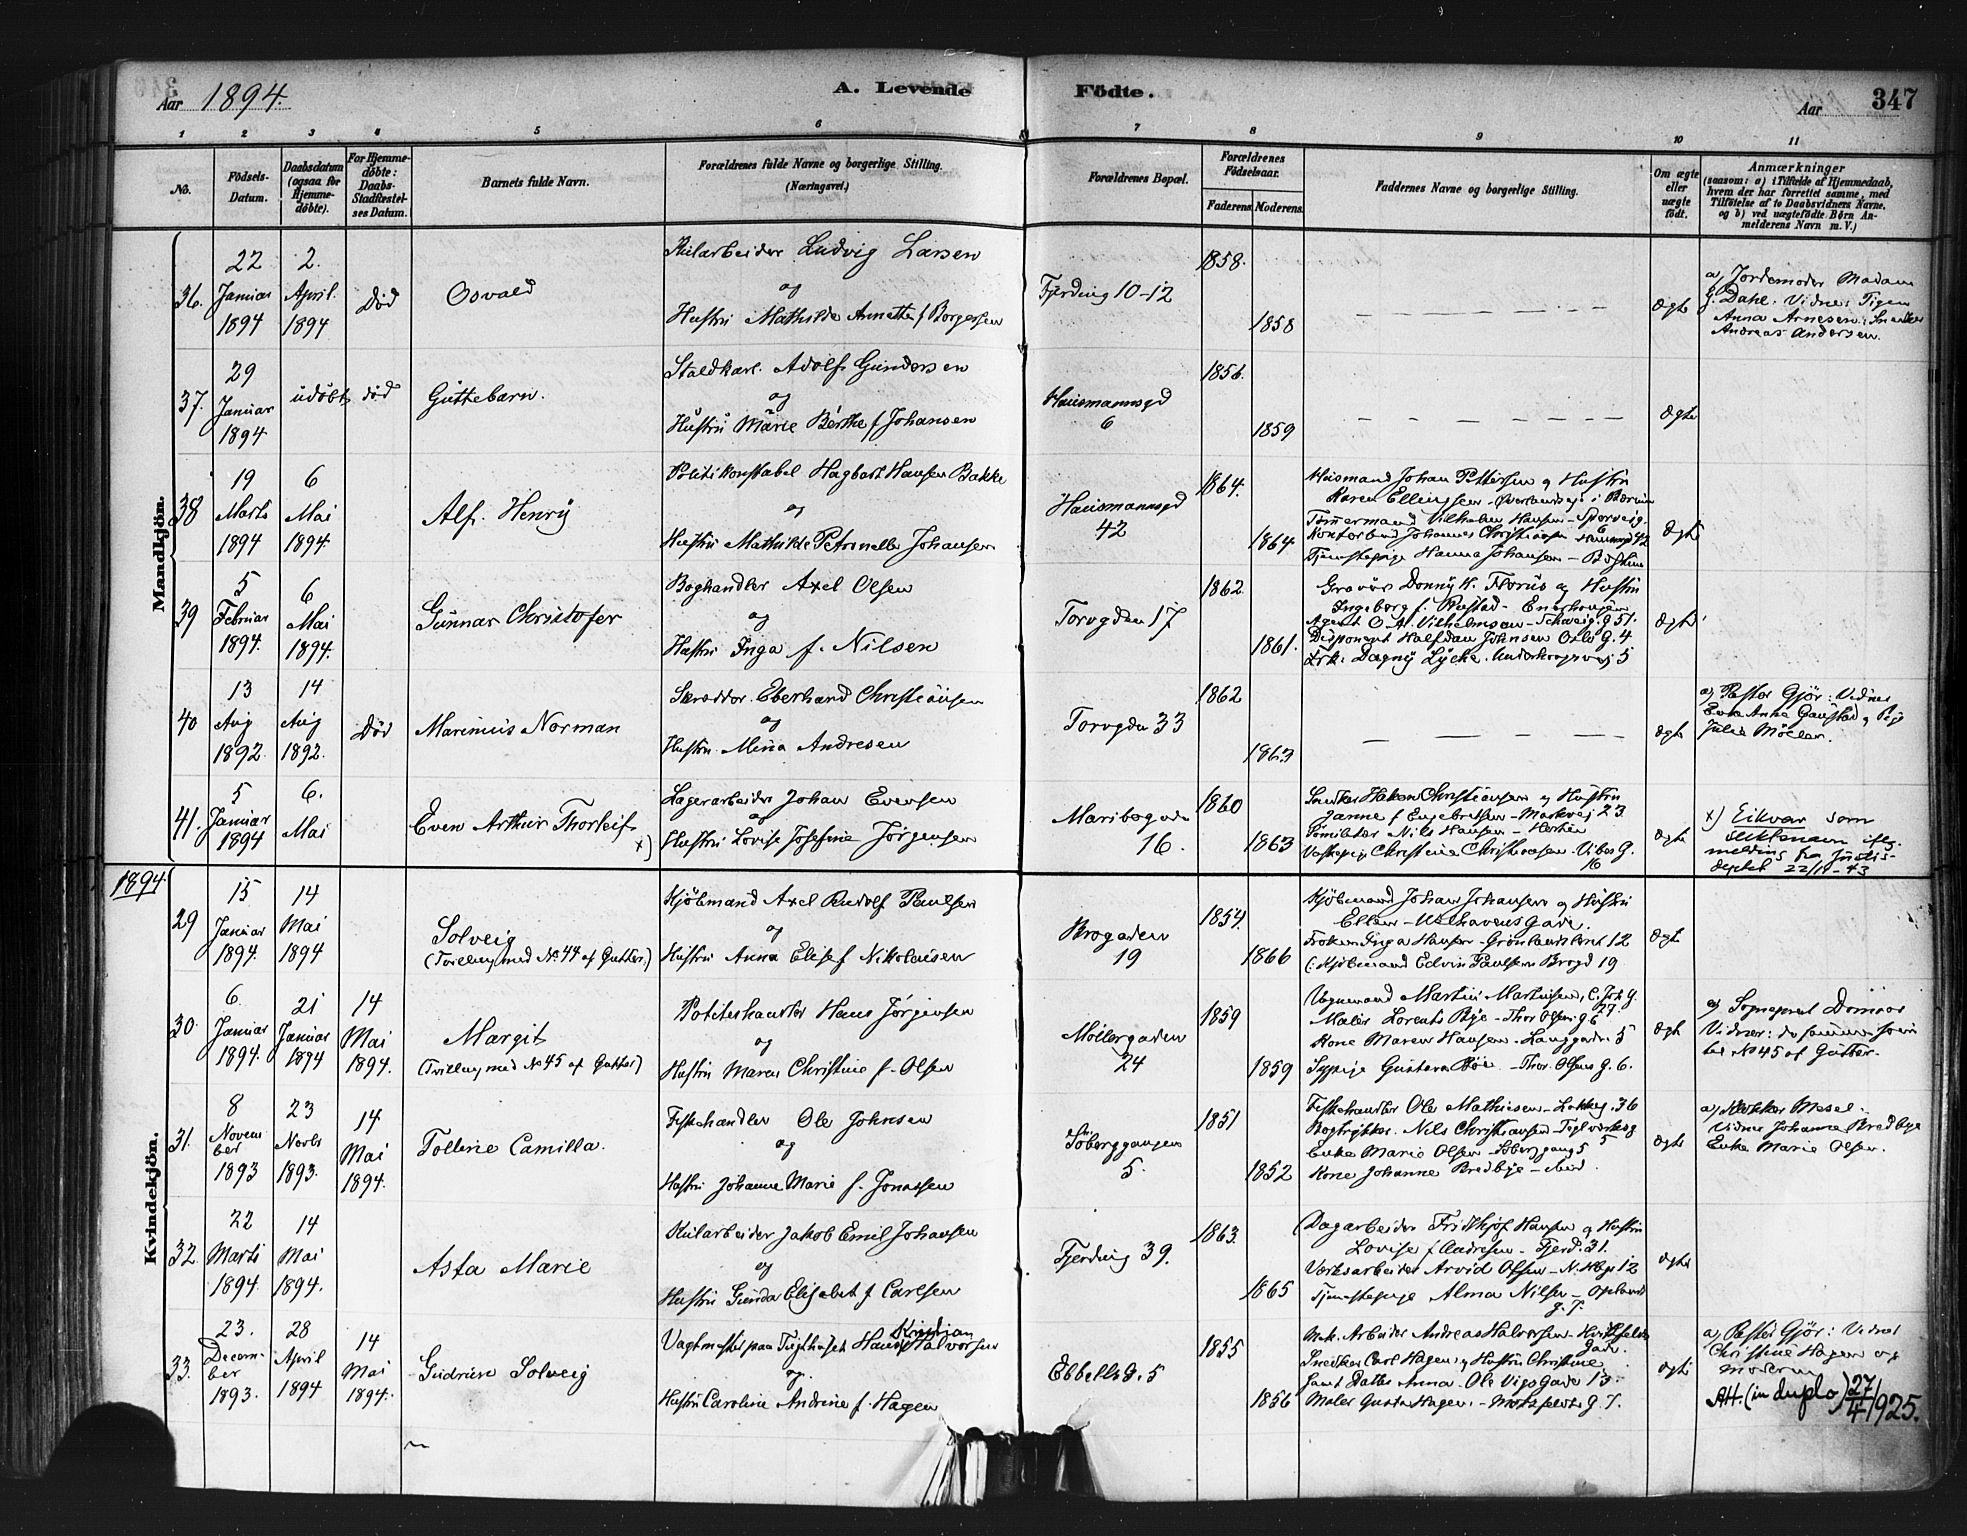 Aar 1894.
A. Levende
Födte.
Aar
347
1 2 3 4 5 6 7 8 9 10 11
No.
Födsels-
Datum.
Daabsdatum
(ogsaa för
Hjemme-
döbte).
For Hjemme-
döbte:
Daabs-
Stadfæstel-
ses Datum.
Barnets fulde Navn.
Forældrenes fulde Navne og borgerlige Stilling.
(Næringsvei.)
Forældrenes Bopæl.
Forældrenes
Födselsaar.
Faderens
Moderens
Faddernes Navne og borgerlige Stilling.
Om ægte
eller
uægte
födt.
Anmærkninger
(saasom: a) i Tilfælde af Hjemmedaab,
hvem der har forrettet samme, med
Tilföielse af to Daabsvidners Navne,
og b) ved uægtefödte Börn An-
melderens Navn m. V.)
Mandkjön.
36.
22
Januar
1894
2.
April.
1894
Död
Osvald
Ludvig Larsen
og
Hustru Mathilde Annette f Borgersen
Fjerding 10-12
1858.
1858
Ægte
a) Jordemoder Madam
J. Dahl. Vidner: Pigen
Anna Arnesen, Snedker
Andreas Andersen.
37.
29
Januar
1894
udöbt
död
Guttebarn.
Staldkarl. Adolf Gundersen
og
Hustru Marie Berthe f Johansen
Hausmannsgd
6
1856.
1859
Ægte
38
19
Marts
1894
6
Mai
1894.
Alf. Henry
Politikonstabel Hagbart Hansen Bakke
og
Hustru Mathilde Petronelle Johansen
Hausmannsgd
42
1864.
1864
Husmand Johan Pettersen og Hustru
Karen Ellingsen
i Bærum
Tømmermand Vilhelm Hansen - Sporveig.
6
Kontorbud Johannes Christiansen
Tjenestepige Hanna Johansen
Ægte
39
5
Februar
1894.
6
Mai
1894.
Gunnar Christofer
Boghandler Axel Olsen
og
Hustru Inga f. Nilsen
Torvgden 17
1862.
1861.
Gravør
og Hustru
Ingeborg f. Rustad - Enerhougen
Agent O. A. Vilhelmsen - Schweig. g 51.
Disponent Halfdan Johnsen Oslo G. 4
Frk. Dagny Lycke.
5
Ægte
40
13
Aug
1892.
14
Aug
1892.
Död
Marinius Norman
Skrædder. Eberhard Christiansen
og
Hustru. Mina Andresen
Torvgden 33
1862
1863
Ægte
a) Pastor Gjör: Vidner
Enke Anne Gaustad og Pige
Julie Möller.
41.
5
Januar
1894
6.
Mai
Even Arthur Thorleif x)
Lagerarbeider Johan Evensen
og
Hustru Lovise Josefine Jørgensen
Maribogaden
16.
1860
1863
Snedker Haken Christiansen og Hustru
Janne f Engebretsen - Markvej 23.
Nils Hansen
Christine Christiansen - Vibes G.
16
Ægte
x) Eikvar som
slektsnavn iflg.
melding fra Justis-
deptet 22/11-43
1894
Kvindekjön.
29
15
Januar
1894.
14
Mai
1894
Solveig
(Tvilling med No. 44 af Gutter.)
Kjöbmand Axel Rudolf Paulsen
og
Hustru Anna Elise f Nikolaisen
Brogaden
19
1854.
1866
Kjöbmand Johan Johansen og Hustru
Ellen - Welhavens Gade.
Frøken Inga Hansen - Grønlandsleret 12
Kjöbmand Edvin Paulsen Brogd 19
Ægte
30.
6.
Januar
1894.
21
Januar
1894
14
Mai
1894.
Margit
(Tvilling med No 45 af Gutter)
Hans Jörgensen
og
Hustru Maren Christine f. Olsen
Möllergaden
24
1859
1859
Vognmand Martin Martinsen,
27.
Maler Lorents Bye - Thor Olsens g 6
Kone Maren Hansen - Langgade. 5
Sypige Gustava Bøe. - Thor. Olsens G. 6.
Ægte
a) Sogneprest
Vidner: de samme som
No 45 af Gutter.
31.
8
Novem
ber
1893
23
Novbr
1893.
14
Mai
1894.
Tolline Camilla.
Fiskehandler Ole Johnsen
og
Hustru Johanne Marie f. Jonassen
Söberggangen
5.
1851
1852
Fiskehandler Ole Mathiesen - Lakkeg. 36
Bogtrykker. Nils Christiansen
5
Enke Marie Olsen - Sobergang 5
Kone Johanne Bredbye - ibid.
Ægte
a) Klokker Mesel.
Vidner Johanne Bredbye
Enke Marie Olsen.
32.
22
Marts
1894.
14
Mai
1894.
Asta Marie
Jakob Emil Johansen
og
Hustru Gunda Elisabet f Carlsen
Fjerding 39.
1863.
1865
Dagarbeider Fridthjof Hansen og Hustru
Lovise f Andresen - Fjerd. 31.
Værksarbeider Arvid Olsen
12
Tjenestepige Alma Nilsen - Oplands
g. 7.
Ægte
33.
23.
Decem-
ber
1893.
28
April
1894
14
Mai
1894.
Gudrun Solveig
Kristian
Vagtmester paa Tugthuset Hans Halvorsen
og
Hustru Caroline Andrine f. Hagen
Ebbells G. 5
1855
1856
Mek. Arbeider Andreas Halvorsen - Hvitfeldts
Gade.
Snedker Carl Hagen og Hustru Christine
samt Datter Anna - Ole Vigs Gade 13.
Maler Gustav Hagen. - Motzfeldts G. 7.
Ægte
a) Pastor Gjör: Vidner
Christine Hagen og
moderen
AH. (in duplo) 27/4 1925.